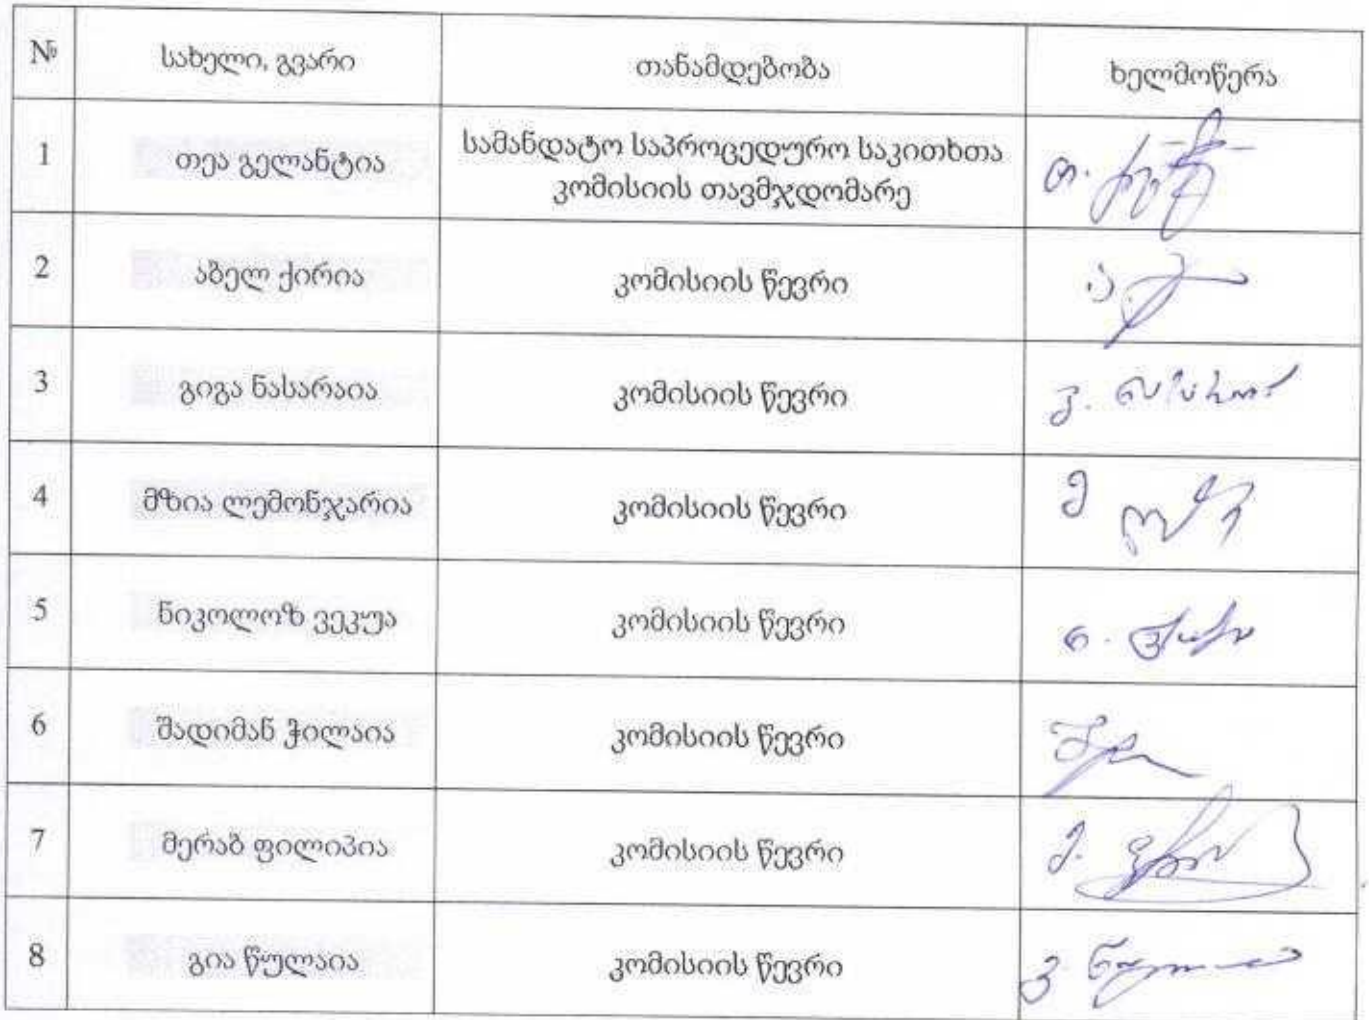 № სახელი, გვარი თანამდებობა ხელმოწერა
1 თეა გელანტია სამანდატო საპროცედურო საკითხთა
კომისიის თავმჯდომარე
2 აბელ ქირია კომისიის წევრი
3 გიგა ნასარაია კომისიის წევრი
4 მზია ლემონჯარია კომისიის წევრი
5 ნიკოლოზ ვეკუა კომისიის წევრი
6 შადიმან ჭილაია კომისიის წევრი
7 მერაბ ფილიპია კომისიის წევრი
8 გია წულაია კომისიის წევრი